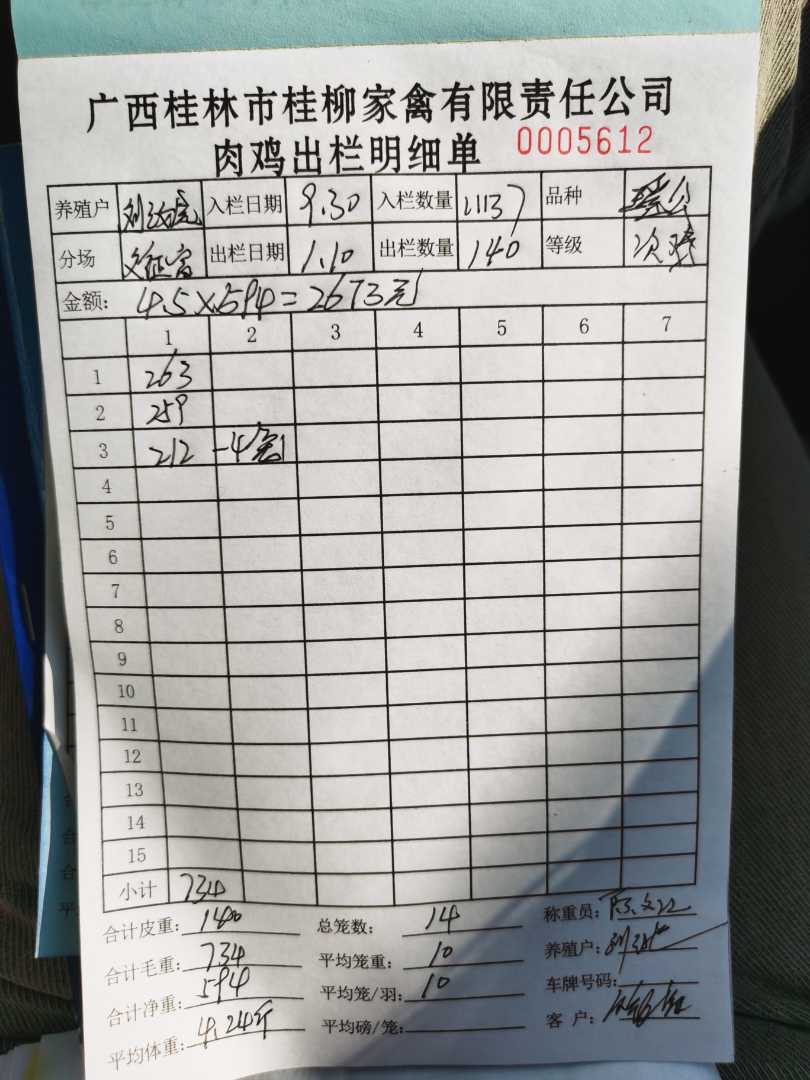 广西桂林市桂柳家禽有限责任公司
肉鸡出栏明细单 0005612
养殖户 入栏日期 9.30 入栏数量 品种
分场 出栏日期 1.10 出栏数量 140 等级
金额: 4.5×594=2673元
1 2 3 4 5 6 7
1 263
2 259
3 212
4
5
6
7
8
9
10
11
12
13
14
15
小计 734
合计皮重: 140 总笼数: 14 称重员:
合计毛重: 734 平均笼重: 10 养殖户:
合计净重: 594 平均笼/羽: 10 车牌号码:
平均体重: 4.24斤 平均磅/笼: 客户: